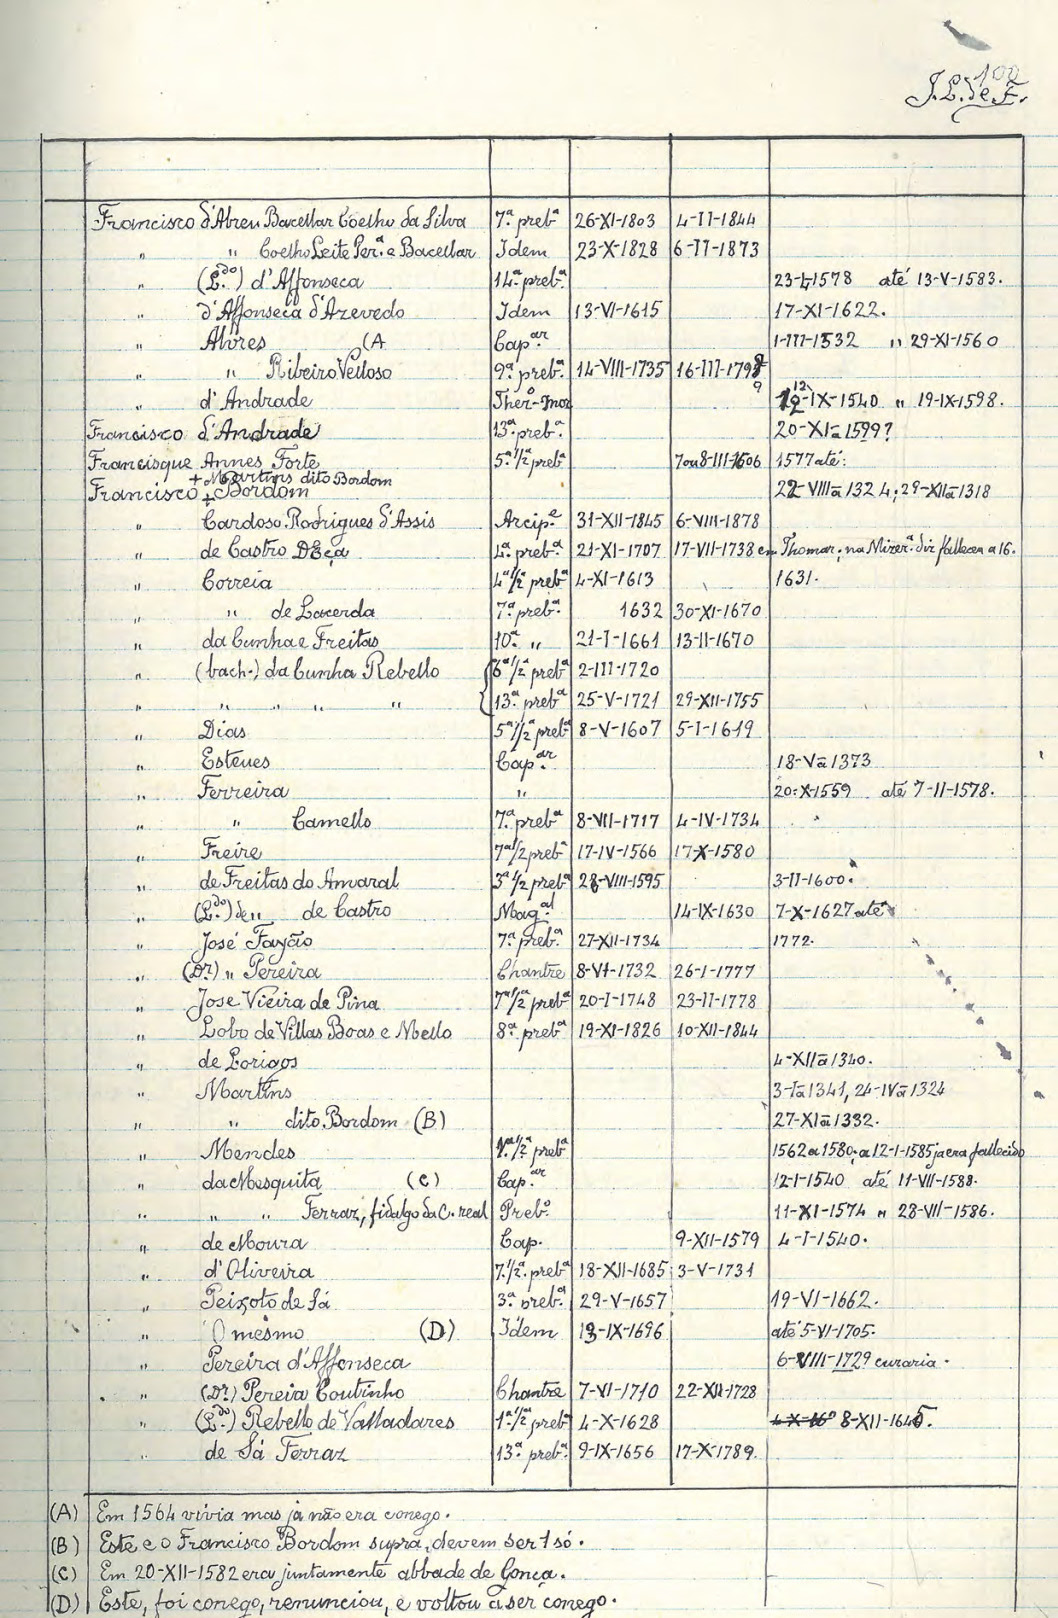 100
J. L. de F.
Francisco d'Abreu Bacellar Coelho da Silva 7.ª preb.ª 26-XI-1803 4-II-1844
" " Coelho Leite Per.ª e Bacellar Idem 23-X-1828 6-II-1873
" (L.do) d'Affonseca 14.ª preb.ª 23-I-1578 até 13-V-1583.
" d'Affonseca d'Azevedo Idem 13-VI-1615 17-XI-1622.
" Alvres (A Cap.ar 1-III-1532 " 29-XI-1560
" " Ribeiro Velloso 9.ª preb.ª 14-VIII-1735 16-III-179 9
" d'Andrade Thes.º-mor 12-IX-1540 " 19-IX-1598.
Francisco d'Andrade 13.ª preb.ª 20-XI ā 1599?
Francisque Annes Forte 5.ª 1/2 preb.ª 7 ou 8-III-1606 1577 até:
+ Martins dito Bordom
Francisco + Bordom 22-VIII ā 1324; 29-XII ā 1318
" Cardoso Rodrigues d'Assis Arcip.e 31-XII-1845 6-VIII-1878
" de Castro D'Eça 4.ª preb.ª 21-XI-1707 17-VII-1738 em Thomar; na Mizer.ª diz falleceu a 16.
" Correia 4.ª 1/2 preb.ª 4-XI-1613 1631.
" " de Lacerda 7.ª preb.ª 1632 30-XI-1670
" da Cunha e Freitas 10.ª " 21-I-1661 13-II-1670
" (bach.) da Cunha Rebello 6.ª 1/2 preb.ª 2-III-1720
" " " " " 13.ª preb.ª 25-V-1721 29-XII-1755
" Dias 5.ª 1/2 preb.ª 8-V-1607 5-I-1619
" Esteves Cap.ar 18-V ā 1373
" Ferreira " 20-X-1559 até 7-II-1578.
" " Camello 7.ª preb.ª 8-VII-1717 4-IV-1734
" Freire 7.ª 1/2 preb.ª 17-IV-1566 17-X-1580
" de Freitas do Amaral 3.ª 1/2 preb.ª 28-VIII-1595 3-II-1600.
" (L.do) de " de Castro Mag.al 14-IX-1630 7-X-1627 até
" José Fayão 7.ª preb.ª 27-XII-1734 1772.
" (Dr.) " Pereira Chantre 8-VI-1732 26-I-1777
" Jose Vieira de Pina 7.ª 1/2 preb.ª 20-I-1748 23-II-1778
" Lobo de Villas Boas e Mello 8.ª preb.ª 19-XI-1826 10-XII-1844
" de Lorigos 4-XII ā 1340.
" Martins 3-I ā 1341, 24-IV ā 1324
" " dito Bordom (B) 27-XI ā 1332.
" Mendes 1.ª 1/2 preb.ª 1562 a 1580; a 12-I-1585 ja era fallecido
" da Mesquita (C) Cap.ar 12-I-1540 até 11-VII-1588.
" " " Ferraz, fidalgo da C. real Preb.º 11-XI-1574 " 28-VII-1586.
" de Moura Cap. 9-XII-1579 4-I-1540.
" d'Oliveira 7. 1/2.ª preb.ª 18-XII-1685 3-V-1731
" Peixoto de Sá 3.ª preb.ª 29-V-1657 19-VI-1662.
" O mesmo (D) Idem 13-IX-1696 até 5-VI-1705.
" Pereira d'Affonseca 6-VIII-1729 curaria.
" (Dr.) Pereira Coutinho Chantre 7-VI-1710 22-XII-1728
" (L.do) Rebello de Valladares 1.ª 1/2 preb.ª 4-X-1628 4-X-16 8-XII-1645.
" de Sá Ferraz 13.ª preb.ª 9-IX-1656 17-X-1789.
(A) Em 1564 vivia mas já não era conego.
(B) Este e o Francisco Bordom supra, devem ser 1 só.
(C) Em 20-XII-1582 era juntamente abbade de Gonça.
(D) Este, foi conego, renunciou, e voltou a ser conego.